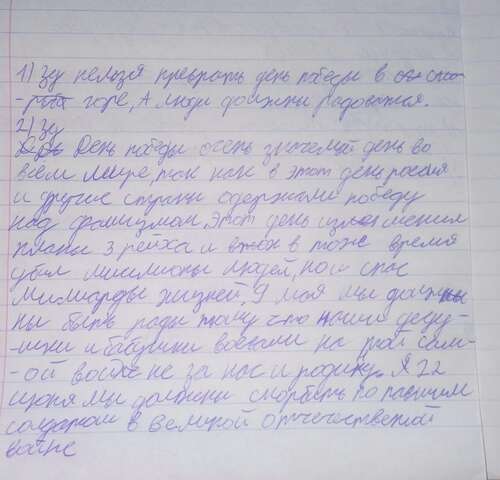 1) Зу нельзя преврать день победы в
горе, А люди должны радоватся.
2) Зу
День победы очень значемый день во
всем мире, так как в этот день россия
и другие страны одержали победу
над фашизмом, Этот день изменил
планы 3 рейха и в тоже время
убил миллионы людей, но и спас
милиарды жизней, 9 мая мы долж
ны быть рады тому что наши деду-
-шки и бабушки воевали на той сам-
-ой войне за нас и родину. А 22
июня мы должны скорбить по павшим
солдатам в великой отечественой
войне